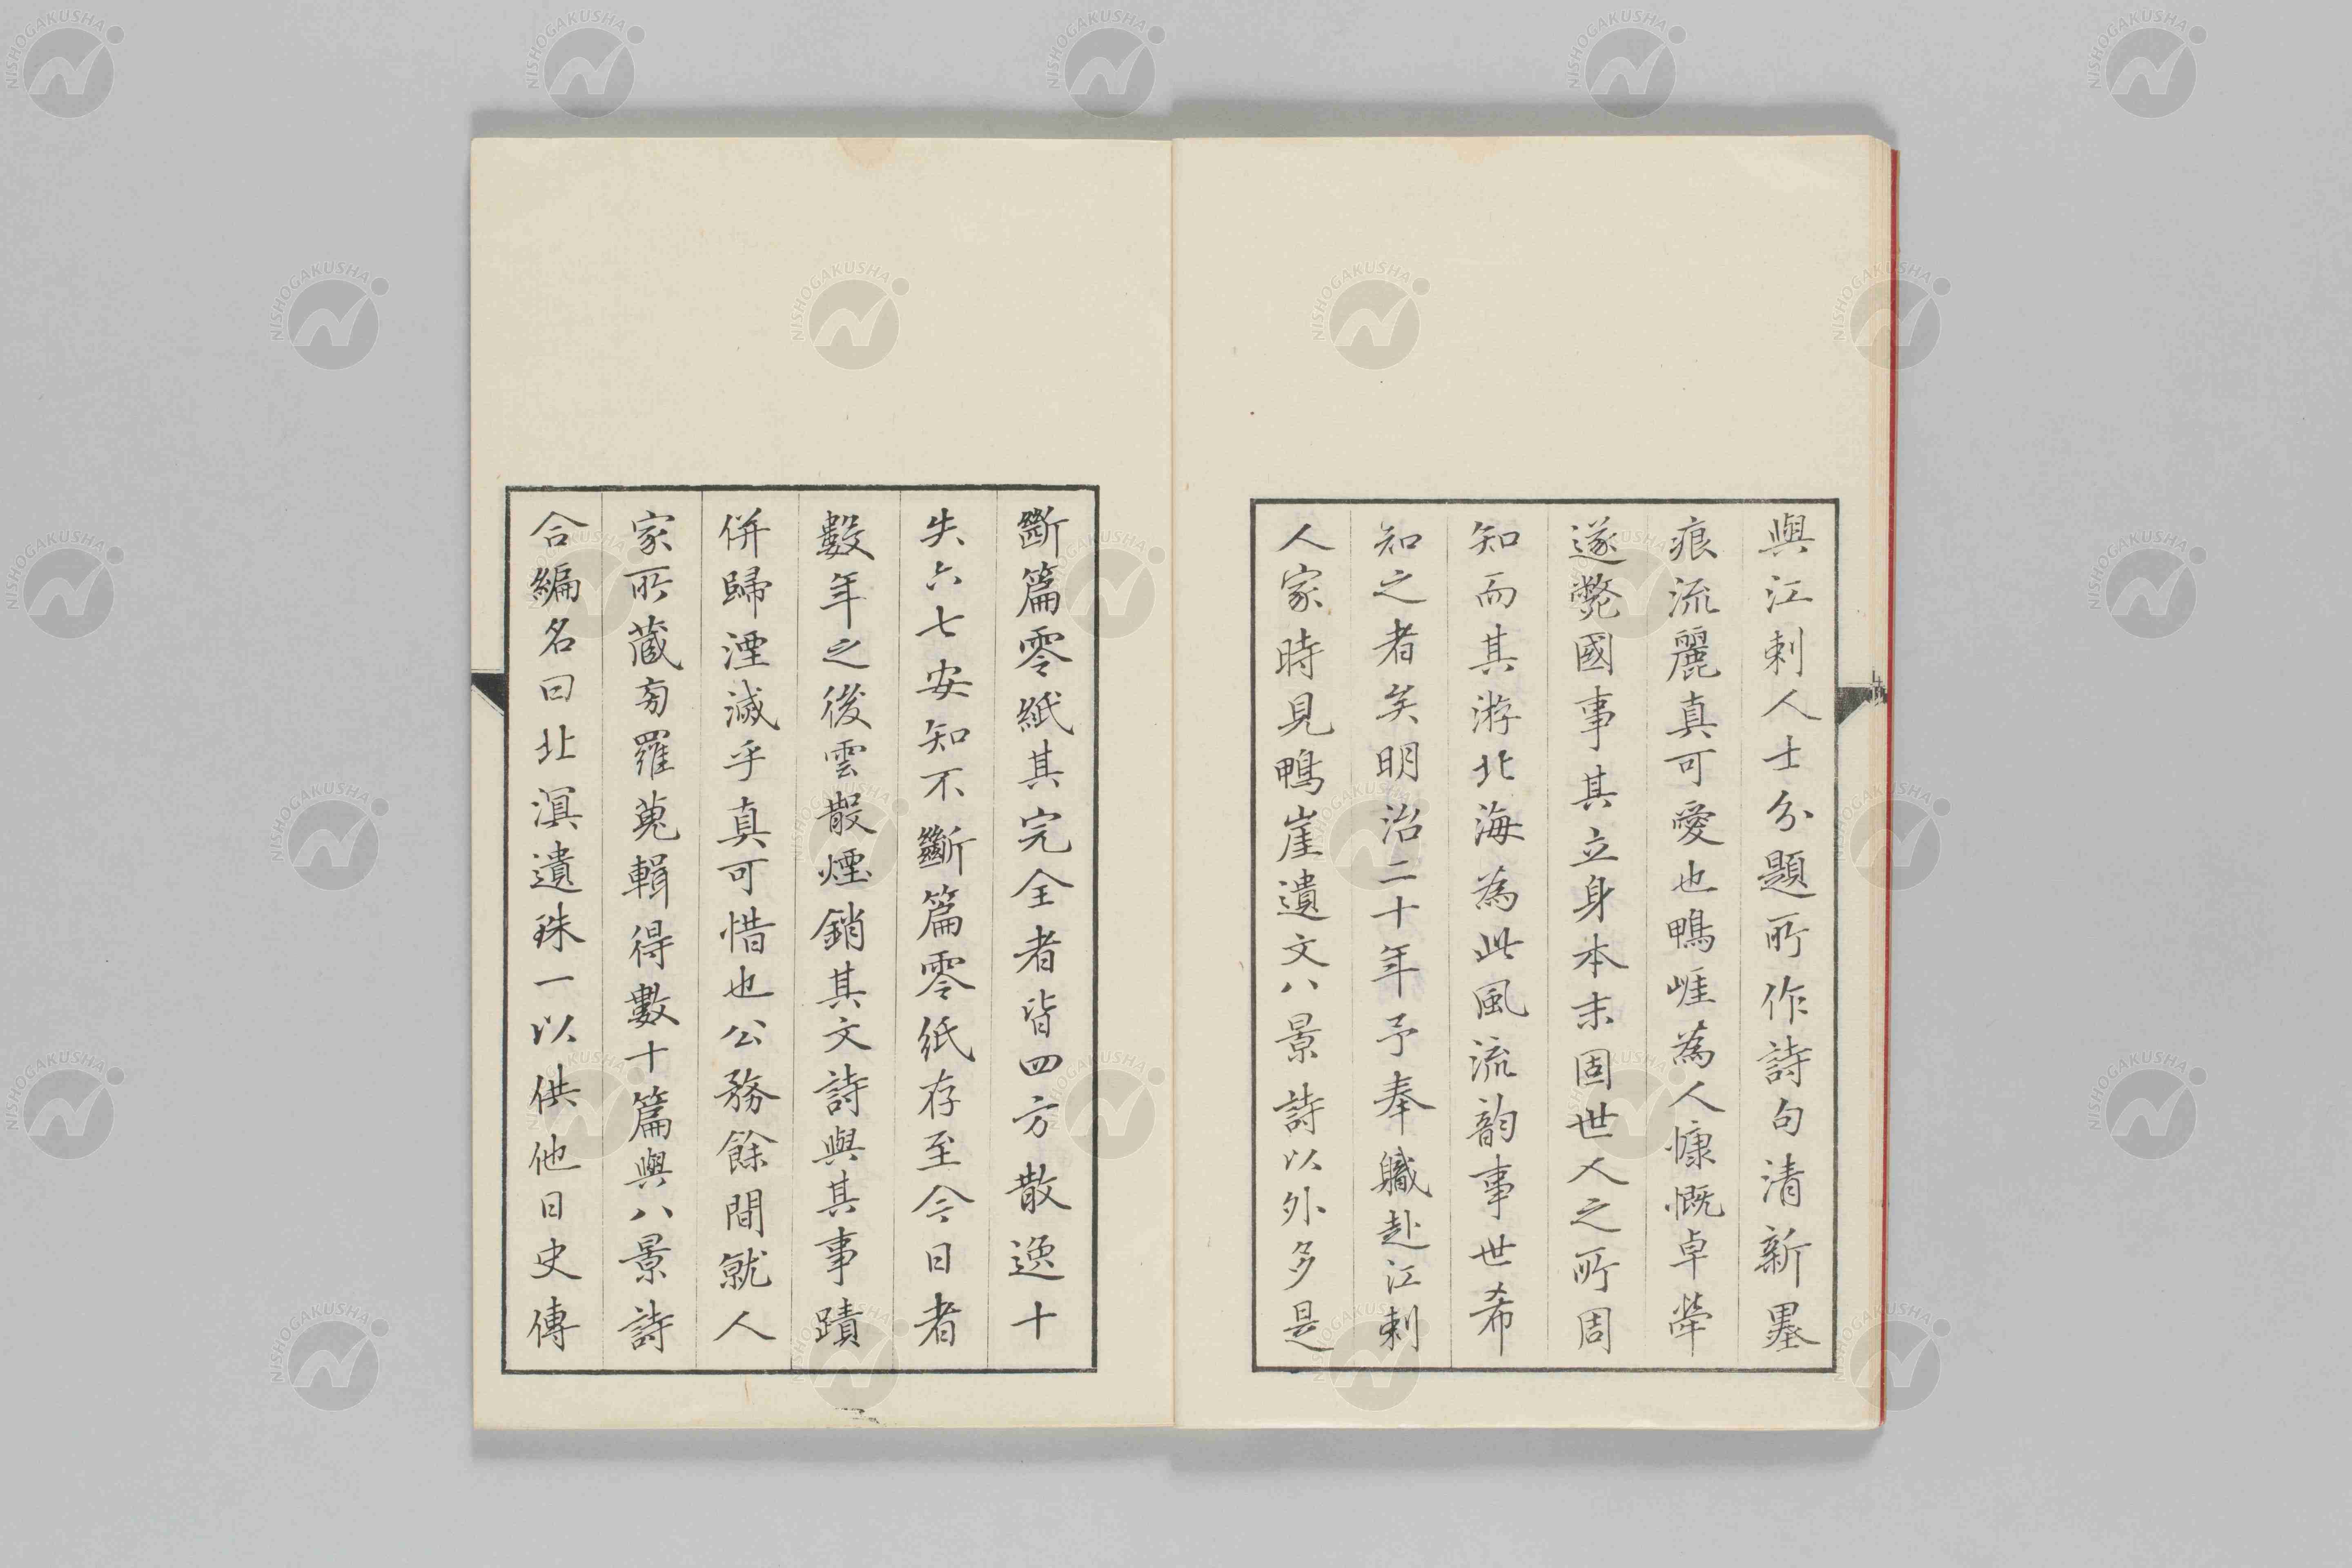 與江刺人士分題所作詩句清新墨
痕流麗真可愛也鴨崕為人慷慨卓犖
遂斃國事其立身本末固世人之所周
知而其游北海為此風流韵事世希
知之者矣明治二十年予奉職赴江刺
人家時見鴨崖遺文八景詩以外多是
斷篇零紙其完全者皆四方散逸十
失六七安知不斷篇零紙存至今日者
數年之後雲散煙銷其文詩與其事蹟
併歸湮滅乎真可惜也公務餘間就人
家所蔵旁羅蒐輯得數十篇與八景詩
合編名曰北溟遺珠一以供他日史傳
NISHOGAKUSHA